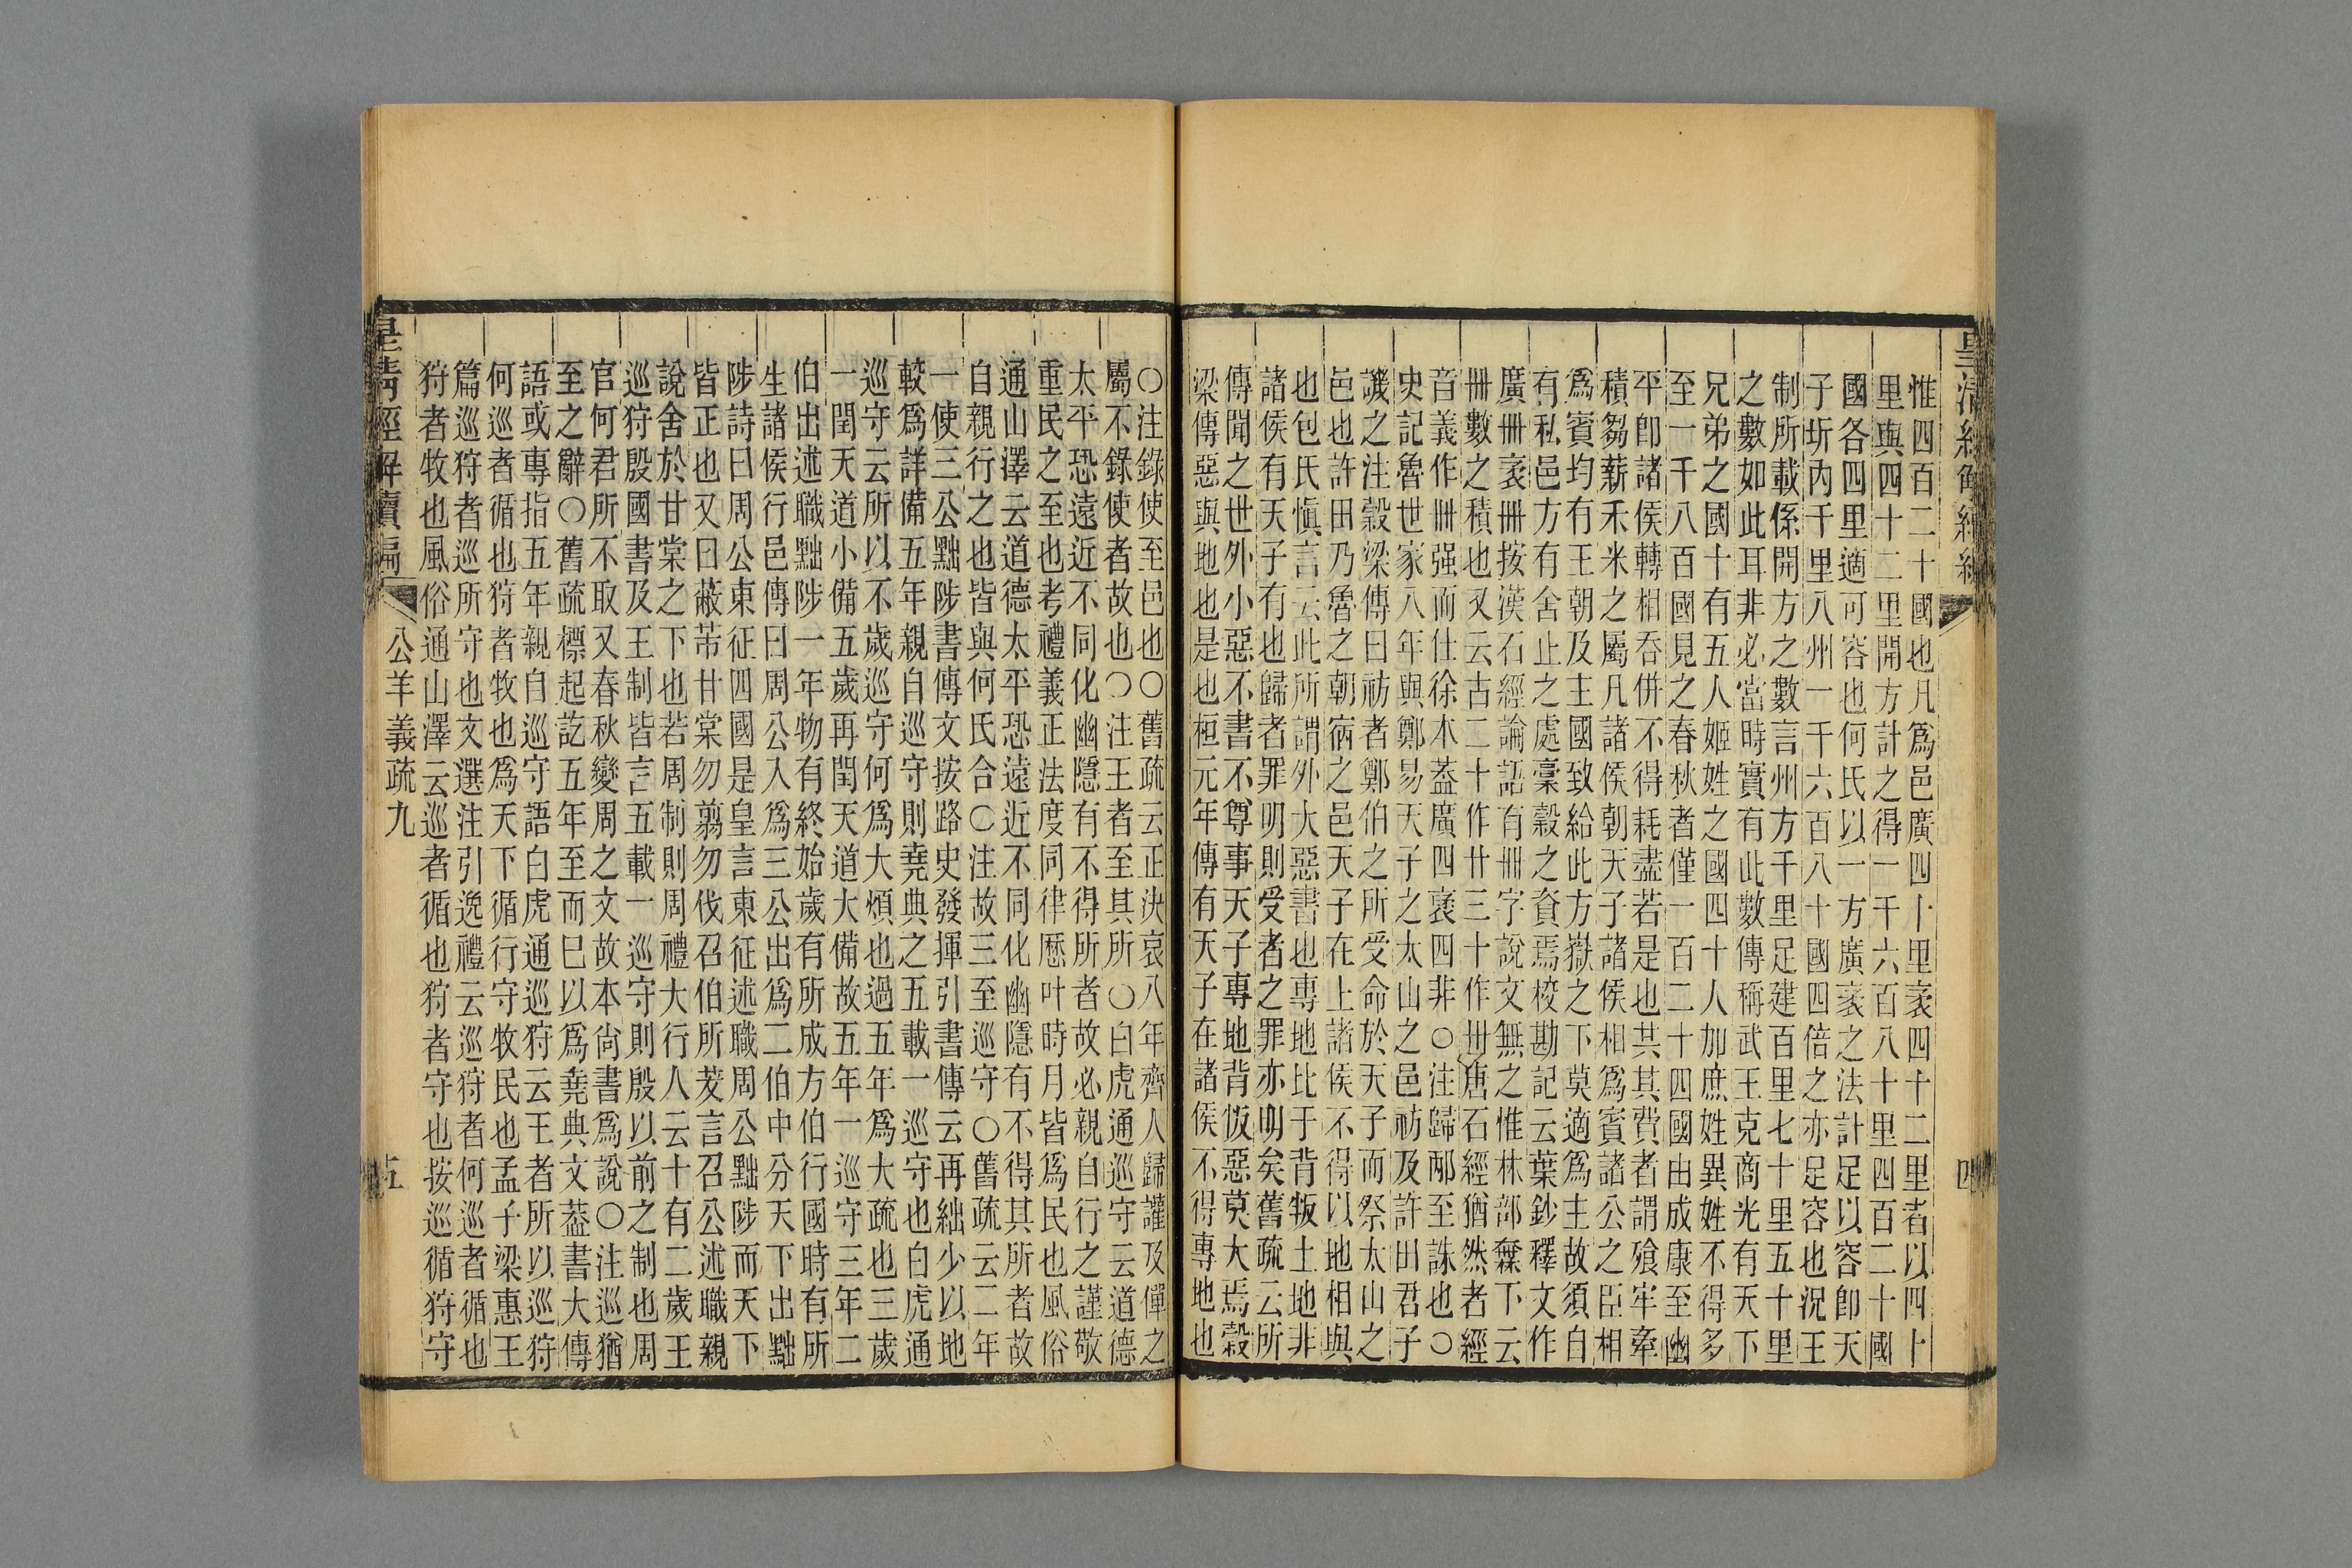 惟四百二十國也凡爲邑廣四十里袤四十二里者以四十
里與四十二里開方計之得一千六百八十里四百二十國
國各四里適可容也何氏以一方廣袤之法計足以容卽天
子圻內千里八州一千六百八十國四倍之亦足容也況王
制所載係開方之數言州方千里足建百里七十里五十里
之數如此耳非必當時實有此數傳稱武王克商光有天下
兄弟之國十有五人姬姓之國四十人加庶姓異姓不得多
至一千八百國見之春秋者僅一百二十四國由成康至幽
平卽諸侯轉相呑併不得耗盡若是也其其費者謂飱牢牽
積芻薪禾米之屬凡諸侯朝天子諸侯相爲賓諸公之臣相
爲賓均有王朝及主國致給此方嶽之下莫適爲主故須白
有私邑方有舍止之處稾穀之資焉校勘記云葉鈔釋文作
廣卌袤卌按漢石經論語有卌字說文無之惟林部橆下云
卌數之積也又云古二十作廿三十作卅唐石經猶然者經
音義作卌强而仕徐本葢廣四袤四非○注歸邴至誅也○
史記魯世家八年與鄭易天子之太山之邑祊及許田君子
譏之注穀梁傳曰祊者鄭伯之所受命於天子而祭太山之
邑也許田乃魯之朝宿之邑天子在上諸侯不得以地相與
也包氏愼言云此所謂外大惡書也專地比于背叛土地非
諸侯有天子有也歸者罪明則受者之罪亦明矣舊疏云所
傳聞之世外小惡不書不尊事天子專地背叛惡莫大焉穀
梁傳惡與地也是也桓元年傳有天子在諸侯不得專地也
皇清經解續編
四
○注錄使至邑也○舊疏云正決哀八年齊人歸讙及僤之
屬不錄使者故也○注王者至其所○白虎通巡守云道德
太平恐遠近不同化幽隱有不得所者故必親自行之謹敬
重民之至也考禮義正法度同律歷叶時月皆爲民也風俗
通山澤云道德太平恐遠近不同化幽隱有不得其所者故
自親行之也皆與何氏合○注故三至巡守○舊疏云二年
一使三公黜陟書傳文按路史發揮引書傳云再絀少以地
較爲詳備五年親自巡守則堯典之五載一巡守也白虎通
巡守云所以不歲巡守何爲大煩也過五年爲大疏也三歲
一閏天道小備五歲再閏天道大備故五年一巡守三年二
伯出述職黜陟一年物有終始歲有所成方伯行國時有所
生諸侯行邑傳曰周公入爲三公出爲二伯中分天下出黜
陟詩曰周公東征四國是皇言東征述職周公黜陟而天下
皆正也又曰蔽芾甘棠勿翦勿伐召伯所茇言召公述職親
說舍於甘棠之下也若周制則周禮大行人云十有二歲王
巡狩殷國書及王制皆言五載一巡守則殷以前之制也周
官何君所不取又春秋變周之文故本尙書爲說○注巡猶
至之辭○舊疏標起訖五年至而巳以爲堯典文葢書大傳
語或專指五年親自巡守語白虎通巡狩云王者所以巡狩
何巡者循也狩者牧也爲天下循行守牧民也孟子梁惠王
篇巡狩者巡所守也文選注引逸禮云巡狩者何巡者循也
狩者牧也風俗通山澤云巡者循也狩者守也按巡循狩守
皇清經解續編
公羊義疏九
五